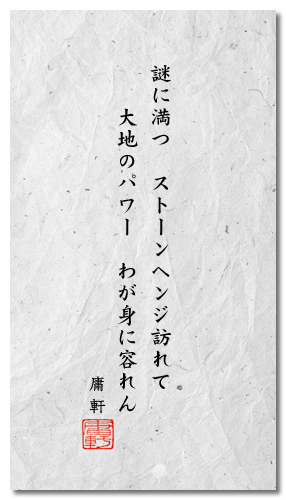 謎に満つ　ストーンヘンジ訪れて
大地のパワー　わが身に容れん
庸軒